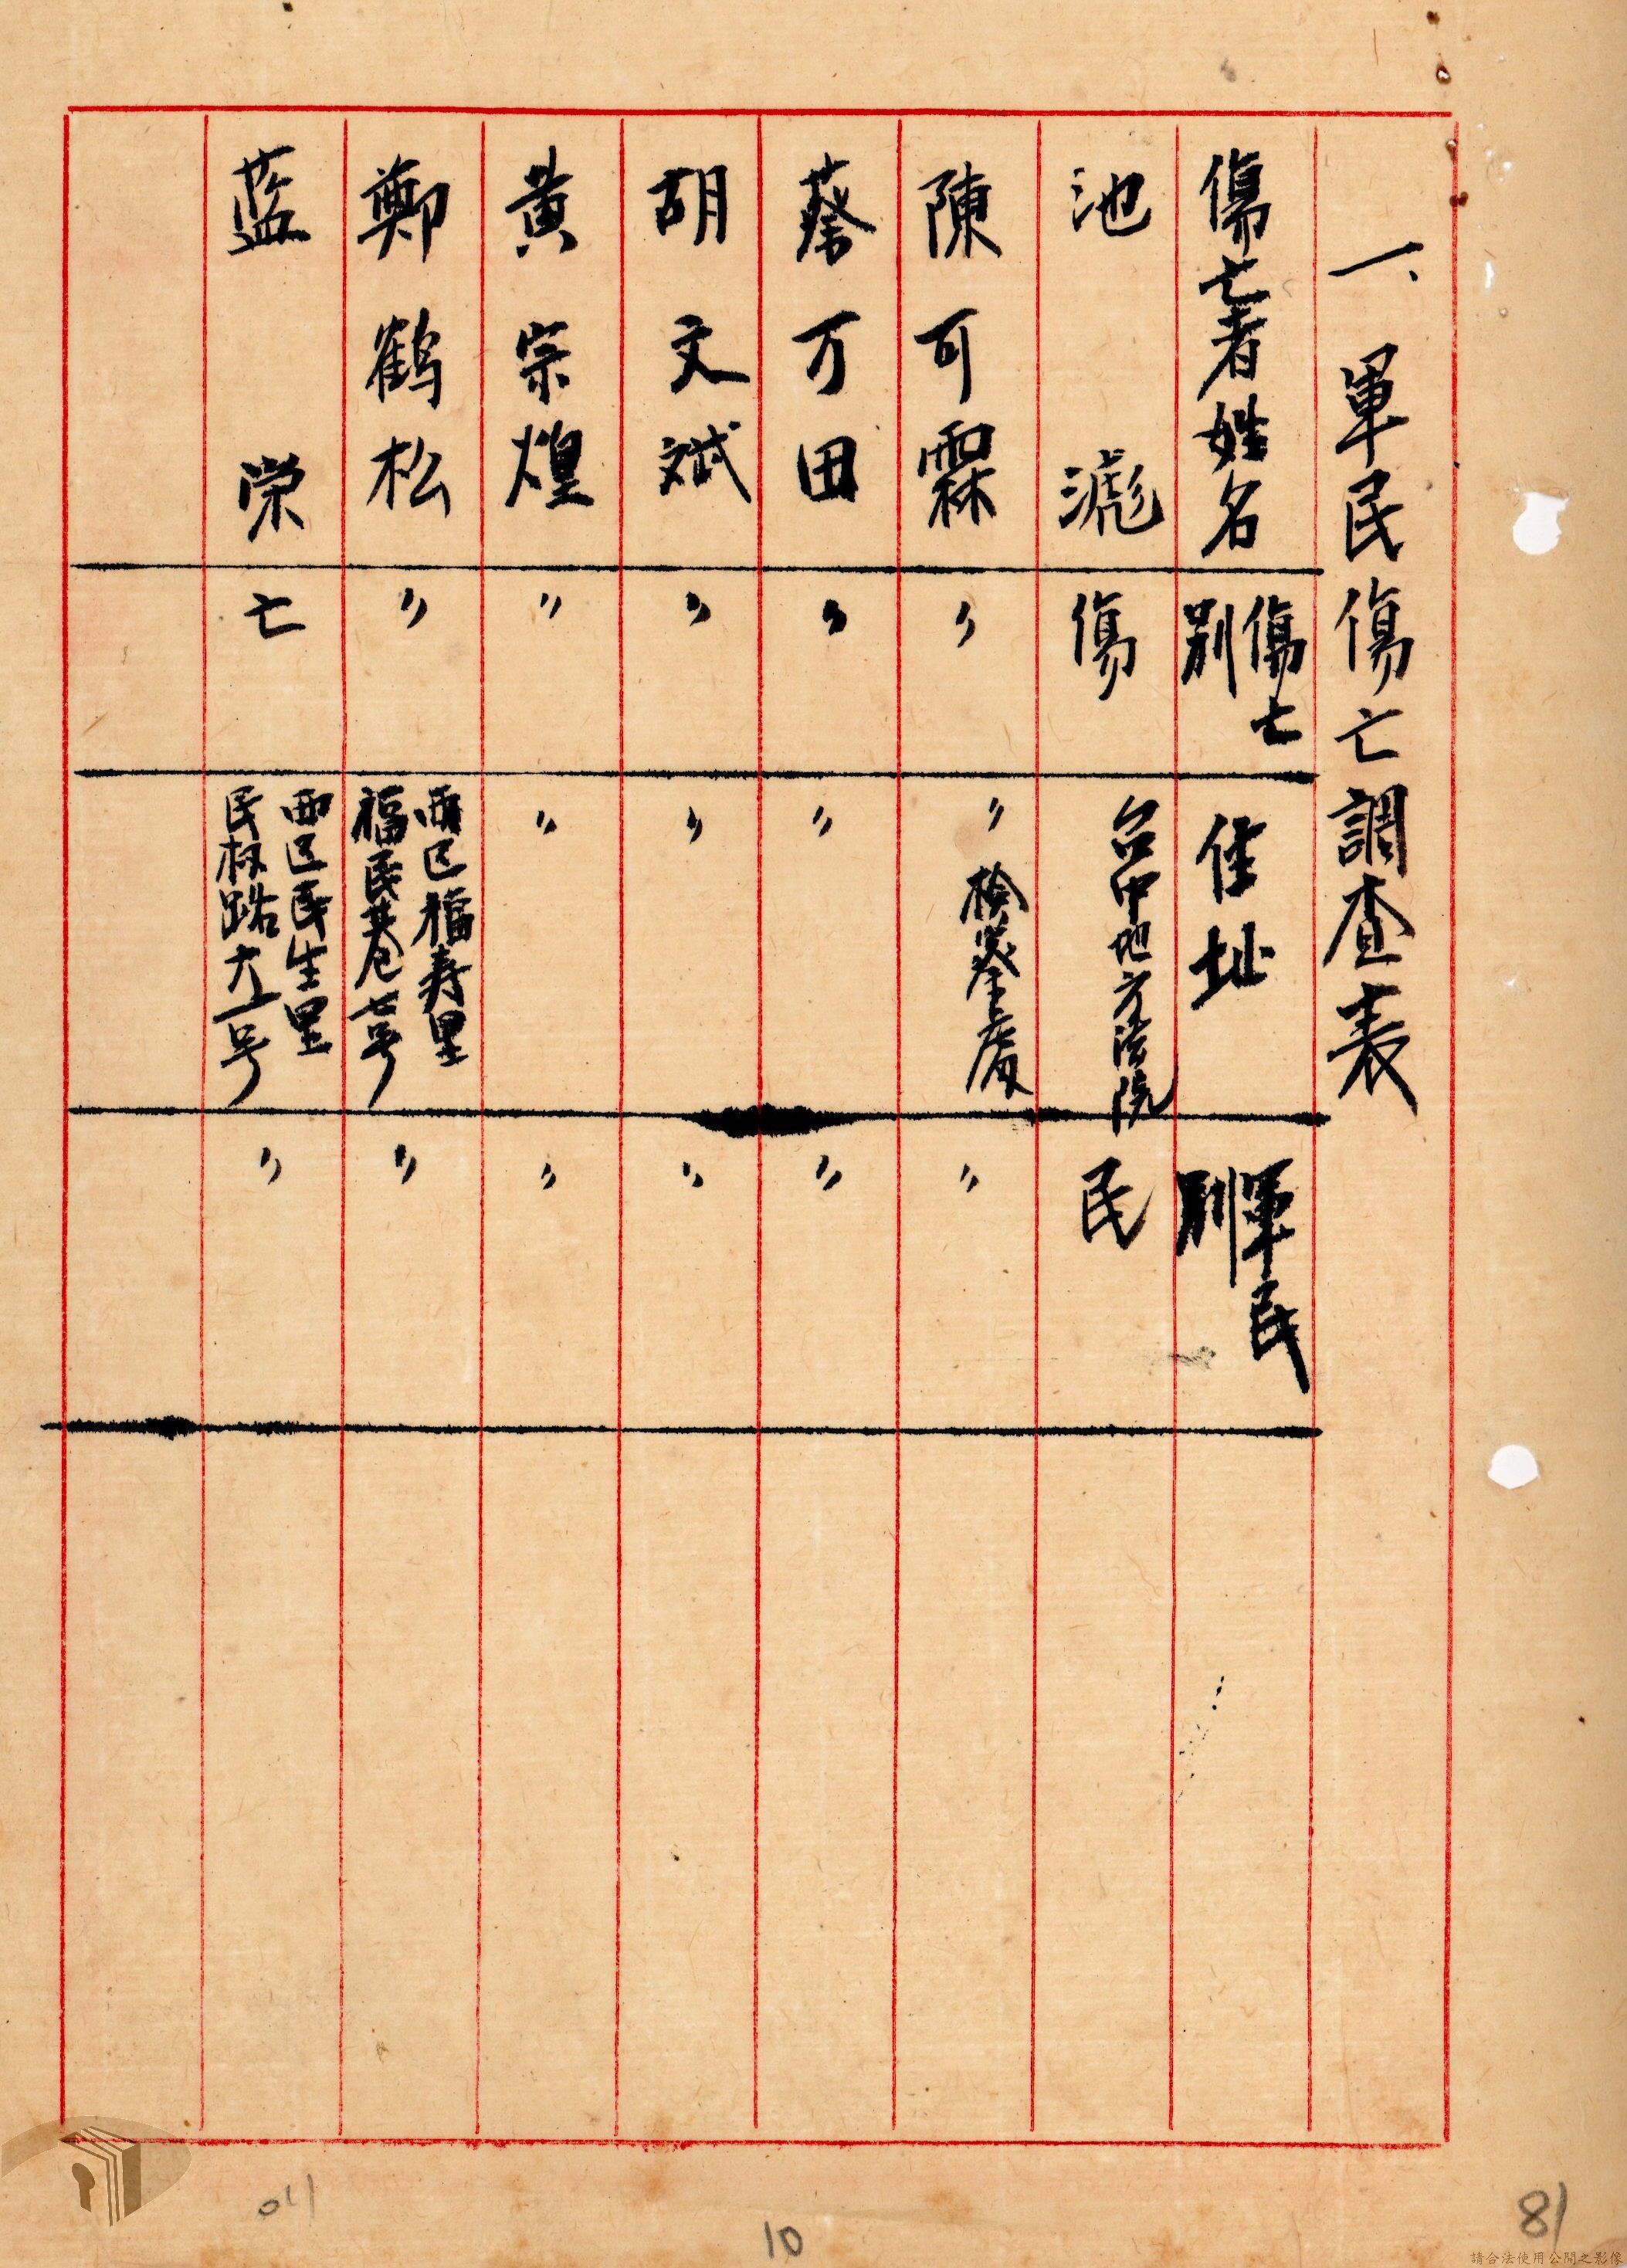 一、軍民傷亡調查表
傷亡者姓名 傷亡別 住址 軍民別
池滮 傷 台中地方法院 民
陳可霖 〃 〃檢察處 〃
蔡万田 〃 〃 〃
胡文斌 〃 〃 〃
黃宗煌 〃 〃 〃
鄭鶴松 〃 西区福寿里福民巷七号 〃
藍栄 亡 西区民生里民权路六一号 〃
10
81
請合法使用公開之影像